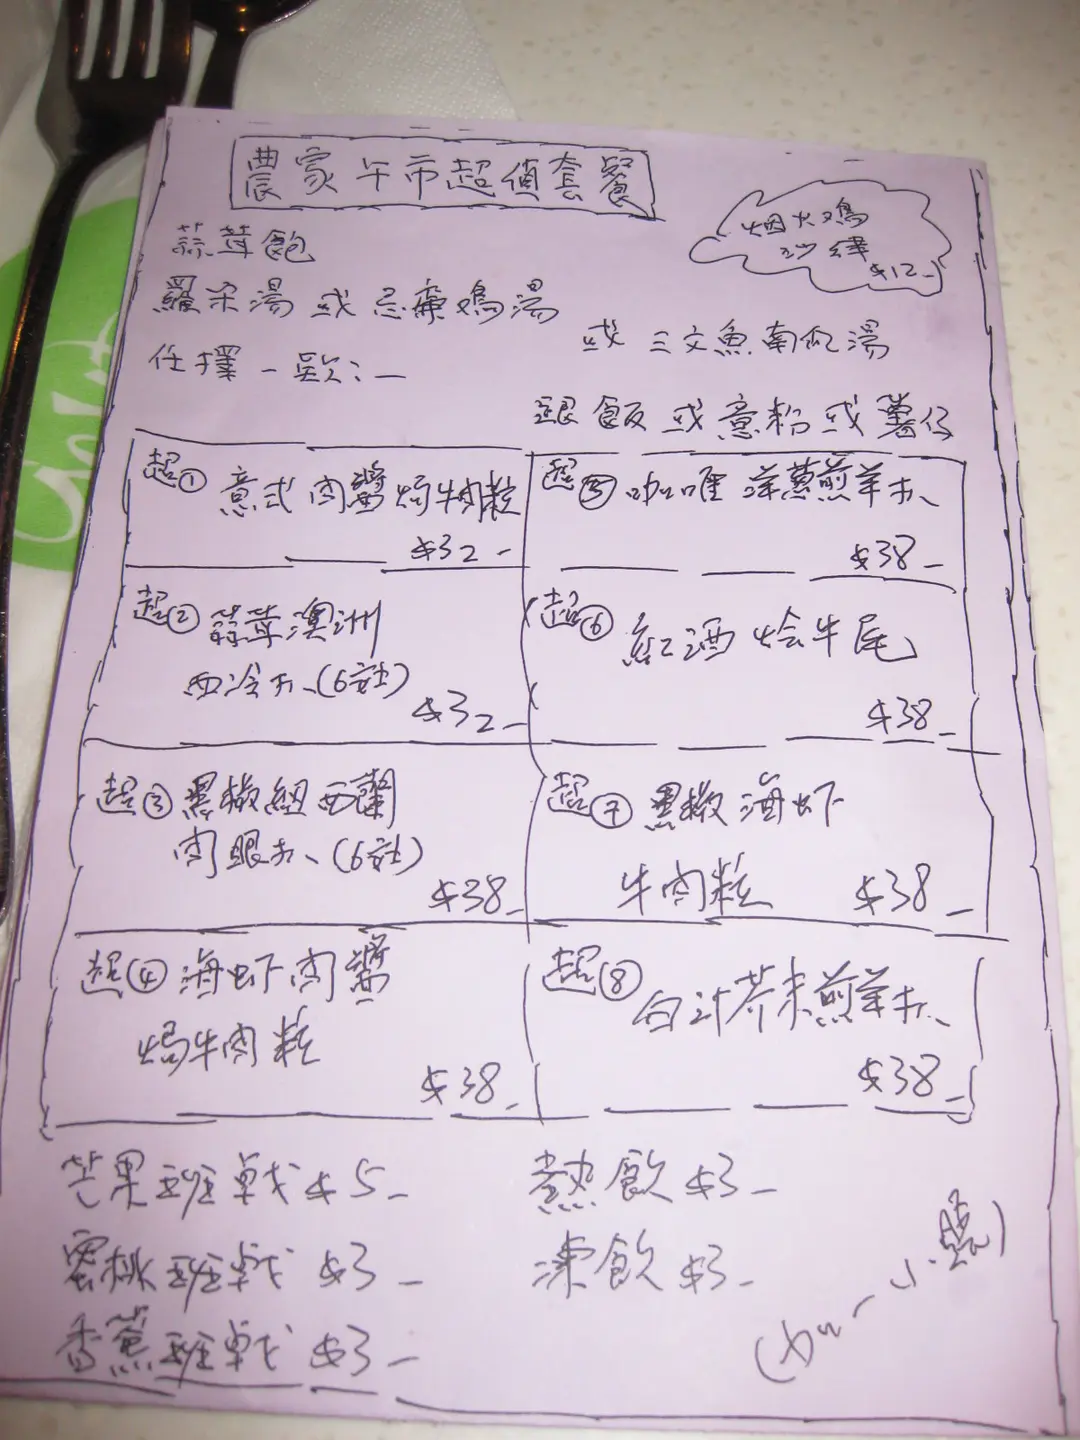 農家午市超值套餐
烟火鸡
沙律
$12_
蒜茸飽
羅宋湯 或 忌廉鸡湯
或 三文魚南瓜湯
任擇一款：_
跟飯或意粉或薯仔
超① 意式肉醬焗牛肉粒
$32_
超⑤ 咖喱洋葱煎羊扒
$38_
超② 蒜茸澳洲
西冷扒(6安士)
$32_
超⑥ 紅酒烩牛尾
$38_
超③ 黑椒紐西蘭
肉眼扒(6安士)
$38_
超⑦ 黑椒海虾
牛肉粒 $38_
超④ 海虾肉醬
焗牛肉粒
$38_
超⑧ 白汁芥末煎羊扒
$38_
芒果班戟 $5_
熱飲 $3_
蜜桃班戟 $3_
凍飲 $3_
香蕉班戟 $3_
(加一小